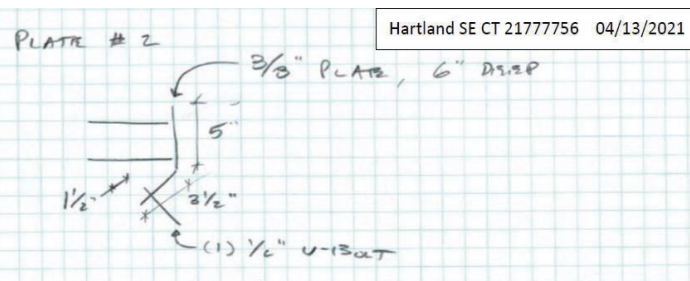 Hartland SE CT 21777756 04/13/2021
PLATE # 2
3/8" PLATE, 6" DEEP
5"
1 1/2"
3 1/2"
(1) 1/2" U-BOLT